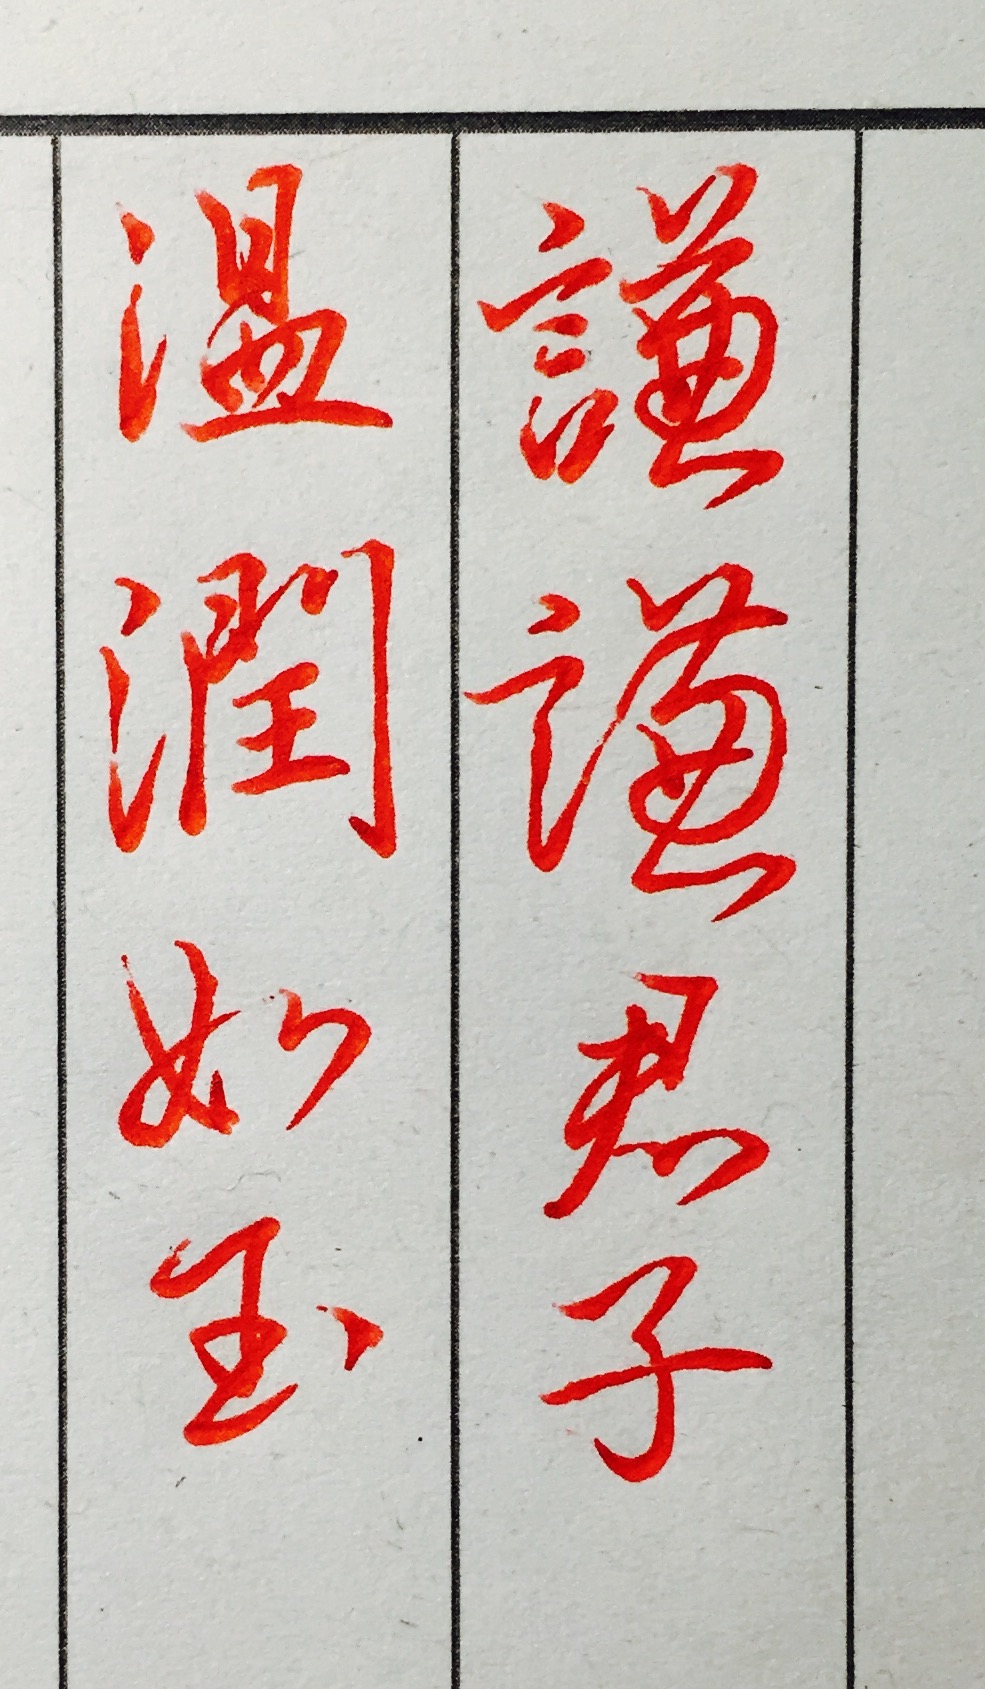 謙謙君子
溫潤如玉